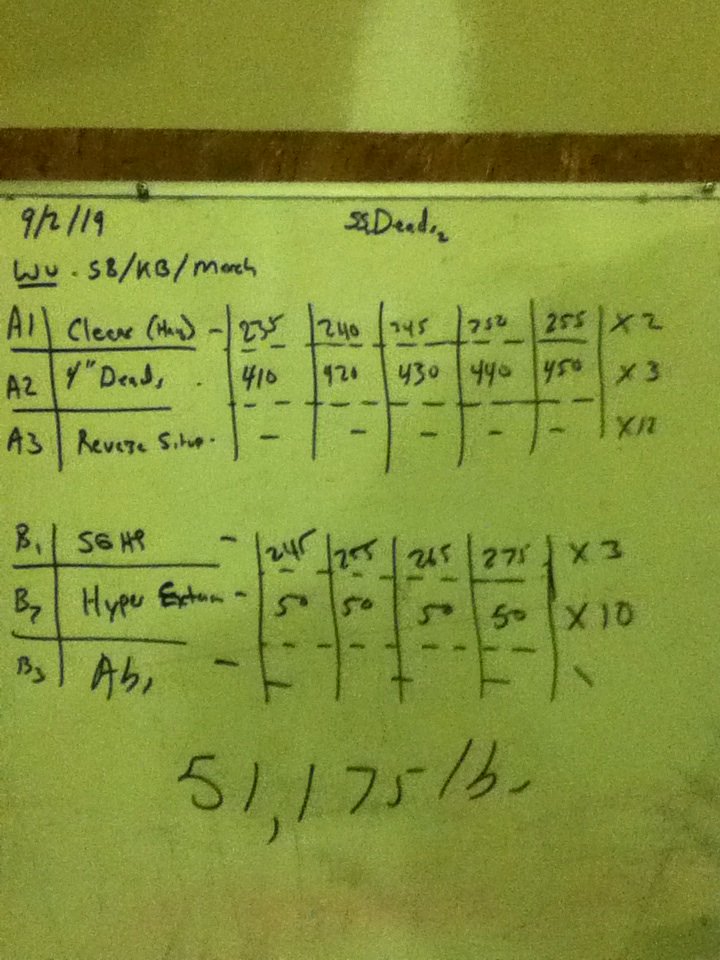 9/2/19
Dead
WU - SB/KB/March
A1 Cleans (Hang) - 235 240 245 250 255 X 2
A2 4" Dead, - 410 420 430 440 450 X 3
A3 Reverse Situp - - - - - - X12
B1 SGHP - 245 255 265 275 X 3
B2 Hyper Exten - 50 50 50 50 X 10
B3 Ab, - - - -
51,175 lb